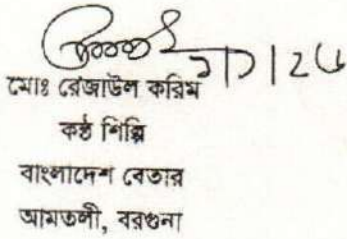 ১/১/২৬
মোঃ রেজাউল করিম
কন্ঠ শিল্পি
বাংলাদেশ বেতার
আমতলী, বরগুনা